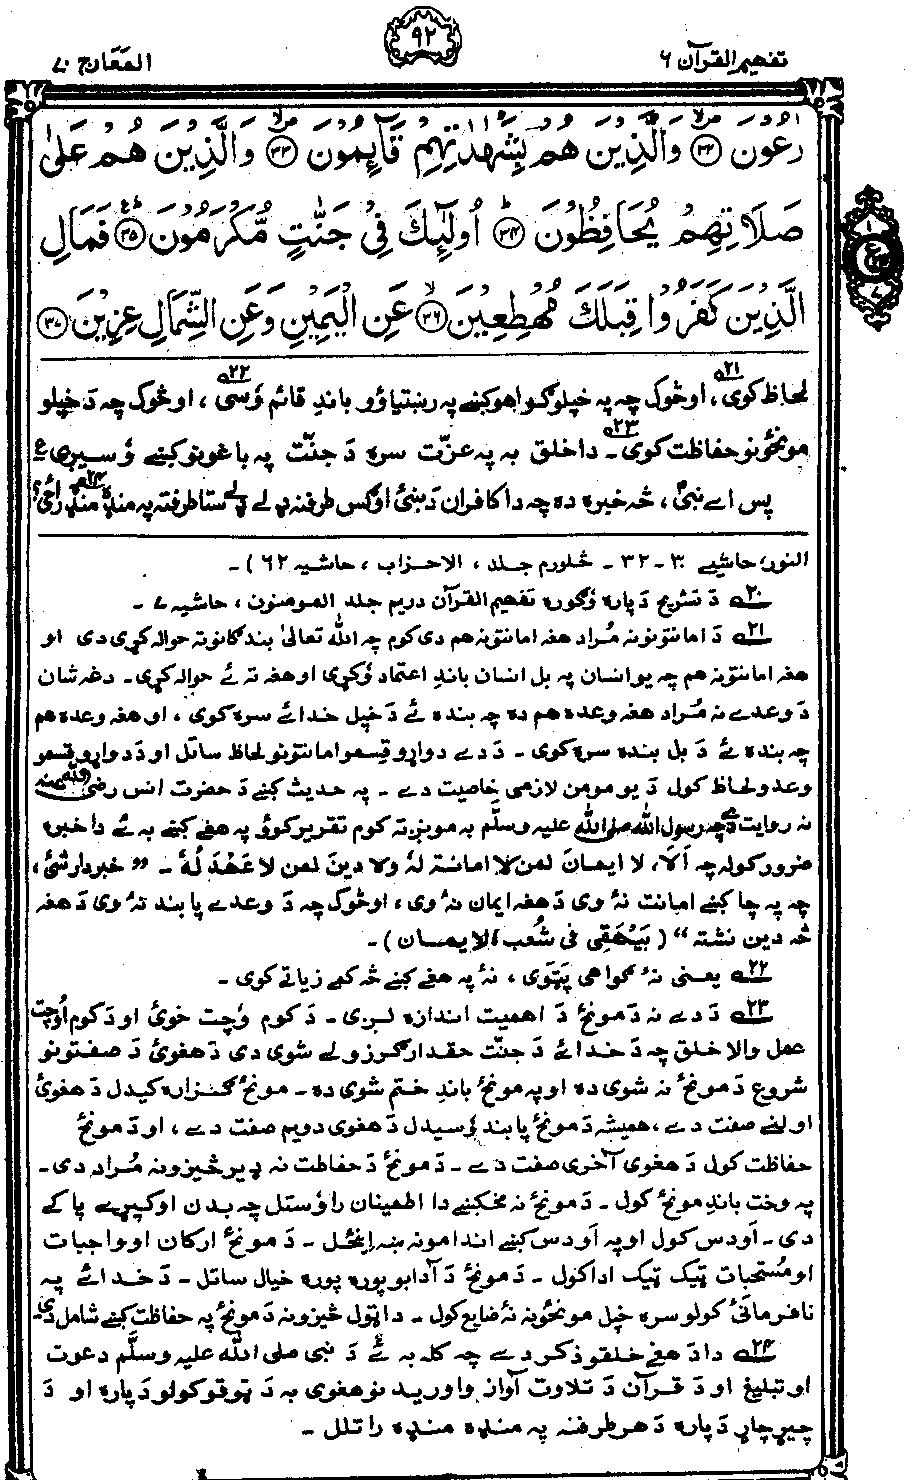 تفهیم القرآن ۶
۹۲
المَعَارج ۷۰
رٰعُوْنَ ۝۳۲ وَالَّذِيْنَ هُمْ بِشَهٰدٰتِهِمْ قَآئِمُوْنَ ۝۳۳ وَالَّذِيْنَ هُمْ عَلٰى
صَلَاتِهِمْ يُحَافِظُوْنَ ۝۳۴ اُولٰٓئِكَ فِيْ جَنّٰتٍ مُّكْرَمُوْنَ ۝۳۵ فَمَالِ
الَّذِيْنَ كَفَرُوْا قِبَلَكَ مُهْطِعِيْنَ ۝۳۶ عَنِ الْيَمِيْنِ وَعَنِ الشِّمَالِ عِزِيْنَ ۝۳۷
لحاظ کوی۲۱، او څوک چه په خپلو ګواهو کښے په رښتیاؤو باندِ قائم وٗسی۲۲، او څوک چه دَ خپلو
مونځونو حفاظت کوی۲۳۔ دا خلق به په عزّت سره دَ جنّت په باغونو کښے وٗسیږی ع
پس اے نبیؐ، څه خبره ده چه دا کافران دَ ښئ او ګس طرفنه ډلے ډلے ستا طرفته په منډه منډه۲۴ راځی؟
النور، حاشیے ۳۰-۳۲ ۔ څلورم جلد، الاحزاب، حاشیه ۶۲)۔
۲۰ دَ تشریح دَ پاره وٗګوره تفهیم القرآن دریم جلد المومنون، حاشیه ۷۔
۲۱ دَ امانتونو نه مُراد هغه امانتونه هم دی کوم چه الله تعالیٰ بندګانو ته حواله کړی دی او
هغه امانتونه هم چه یو انسان په بل انسان باندِ اعتماد وٗکړی او هغه ته ئے حواله کړی۔ دغه شان
دَ وعدے نه مُراد هغه وعده هم ده چه بنده ئے دَ خپل خدائے سره کوی، او هغه وعده هم
چه بنده ئے دَ بل بنده سره کوی۔ دَ دے دواړو قسمو امانتونو لحاظ ساتل او دَ دواړو قسمو
وعدو لحاظ کول دَ یو مومن لازمی خاصیت دے۔ په حدیث کښے دَ حضرت انس رضی الله عنه
نه روایت دے چه رسول الله صلی الله علیه وسلّم به مونږ ته کوم تقریر کوؤ په هغے کښے به ئے دا خبره
ضرور کوله چه اَلَا، لا ایمانَ لمن لا امانةَ لهٗ ولا دینَ لمن لا عَهْدَ لَهٗ ۔ ”خبردار شئ،
چه په چا کښے امانت نهٔ وی دَ هغه ایمان نهٔ وی، او څوک چه دَ وعدے پابند نهٔ وی دَ هغه
څه دین نشته“ (بَیْهَقِی فی شُعَب الایمان)۔
۲۲ یعنی نهٔ ګواهی پَټوَی، نهٔ په هغے کښے څه کمے زیاتے کوی۔
۲۳ دَ دے نه دَ مونځ دَ اهمیت اندازه لږی۔ دَ کوم وٗچت خوئ او دَ کوم اُوچت
عمل والا خلق چه دَ خدائے دَ جنّت حقدار ګرزولے شوی دی دَ هغوئ دَ صفتونو
شروع دَ مونځ نه شوی ده او په مونځ باندِ ختم شوی ده۔ مونځ ګزاره کیدل دَ هغوئ
اولنے صفت دے، همیشه دَ مونځ پابند وٗسیدل دَ هغوی دویم صفت دے، او دَ مونځ
حفاظت کول دَ هغوی آخری صفت دے۔ دَ مونځ دَ حفاظت نه ډیر څیزونه مُراد دی۔
په وخت باندِ مونځ کول۔ دَ مونځ نه مخکښے دا اطمینان راوٗستل چه بدن او کپړے پاکے
دی۔ اَودس کول او په اَودس کښے اندامونه ښه اِنځل۔ دَ مونځ ارکان او واجبات
او مُستحبات ټیک ټیک ادا کول۔ دَ مونځ دَ آدابو پوره پوره خیال ساتل۔ دَ خدائے په
نافرمانیٔ کولو سره خپل مونځونه نهٔ ضایع کول۔ دا ټول څیزونه دَ مونځ په حفاظت کښے شامل دی۔
۲۴ دا دَ هغے خلقو ذکر دے چه کله به ئے دَ نبی صلی الله علیه وسلّم دعوت
او تبلیغ او دَ قرآن دَ تلاوت آواز واوریدنو هغوی به دَ ټوقو کولو دَ پاره او دَ
چیړ چاړ دَ پاره دَ هر طرفنه په منډه منډه راتلل۔